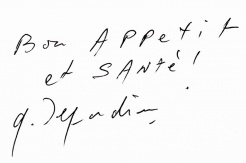 Bon APPetit
et SANTé!